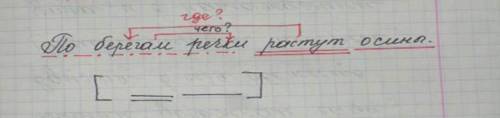 где?
чего?
По берегам речки растут осины.